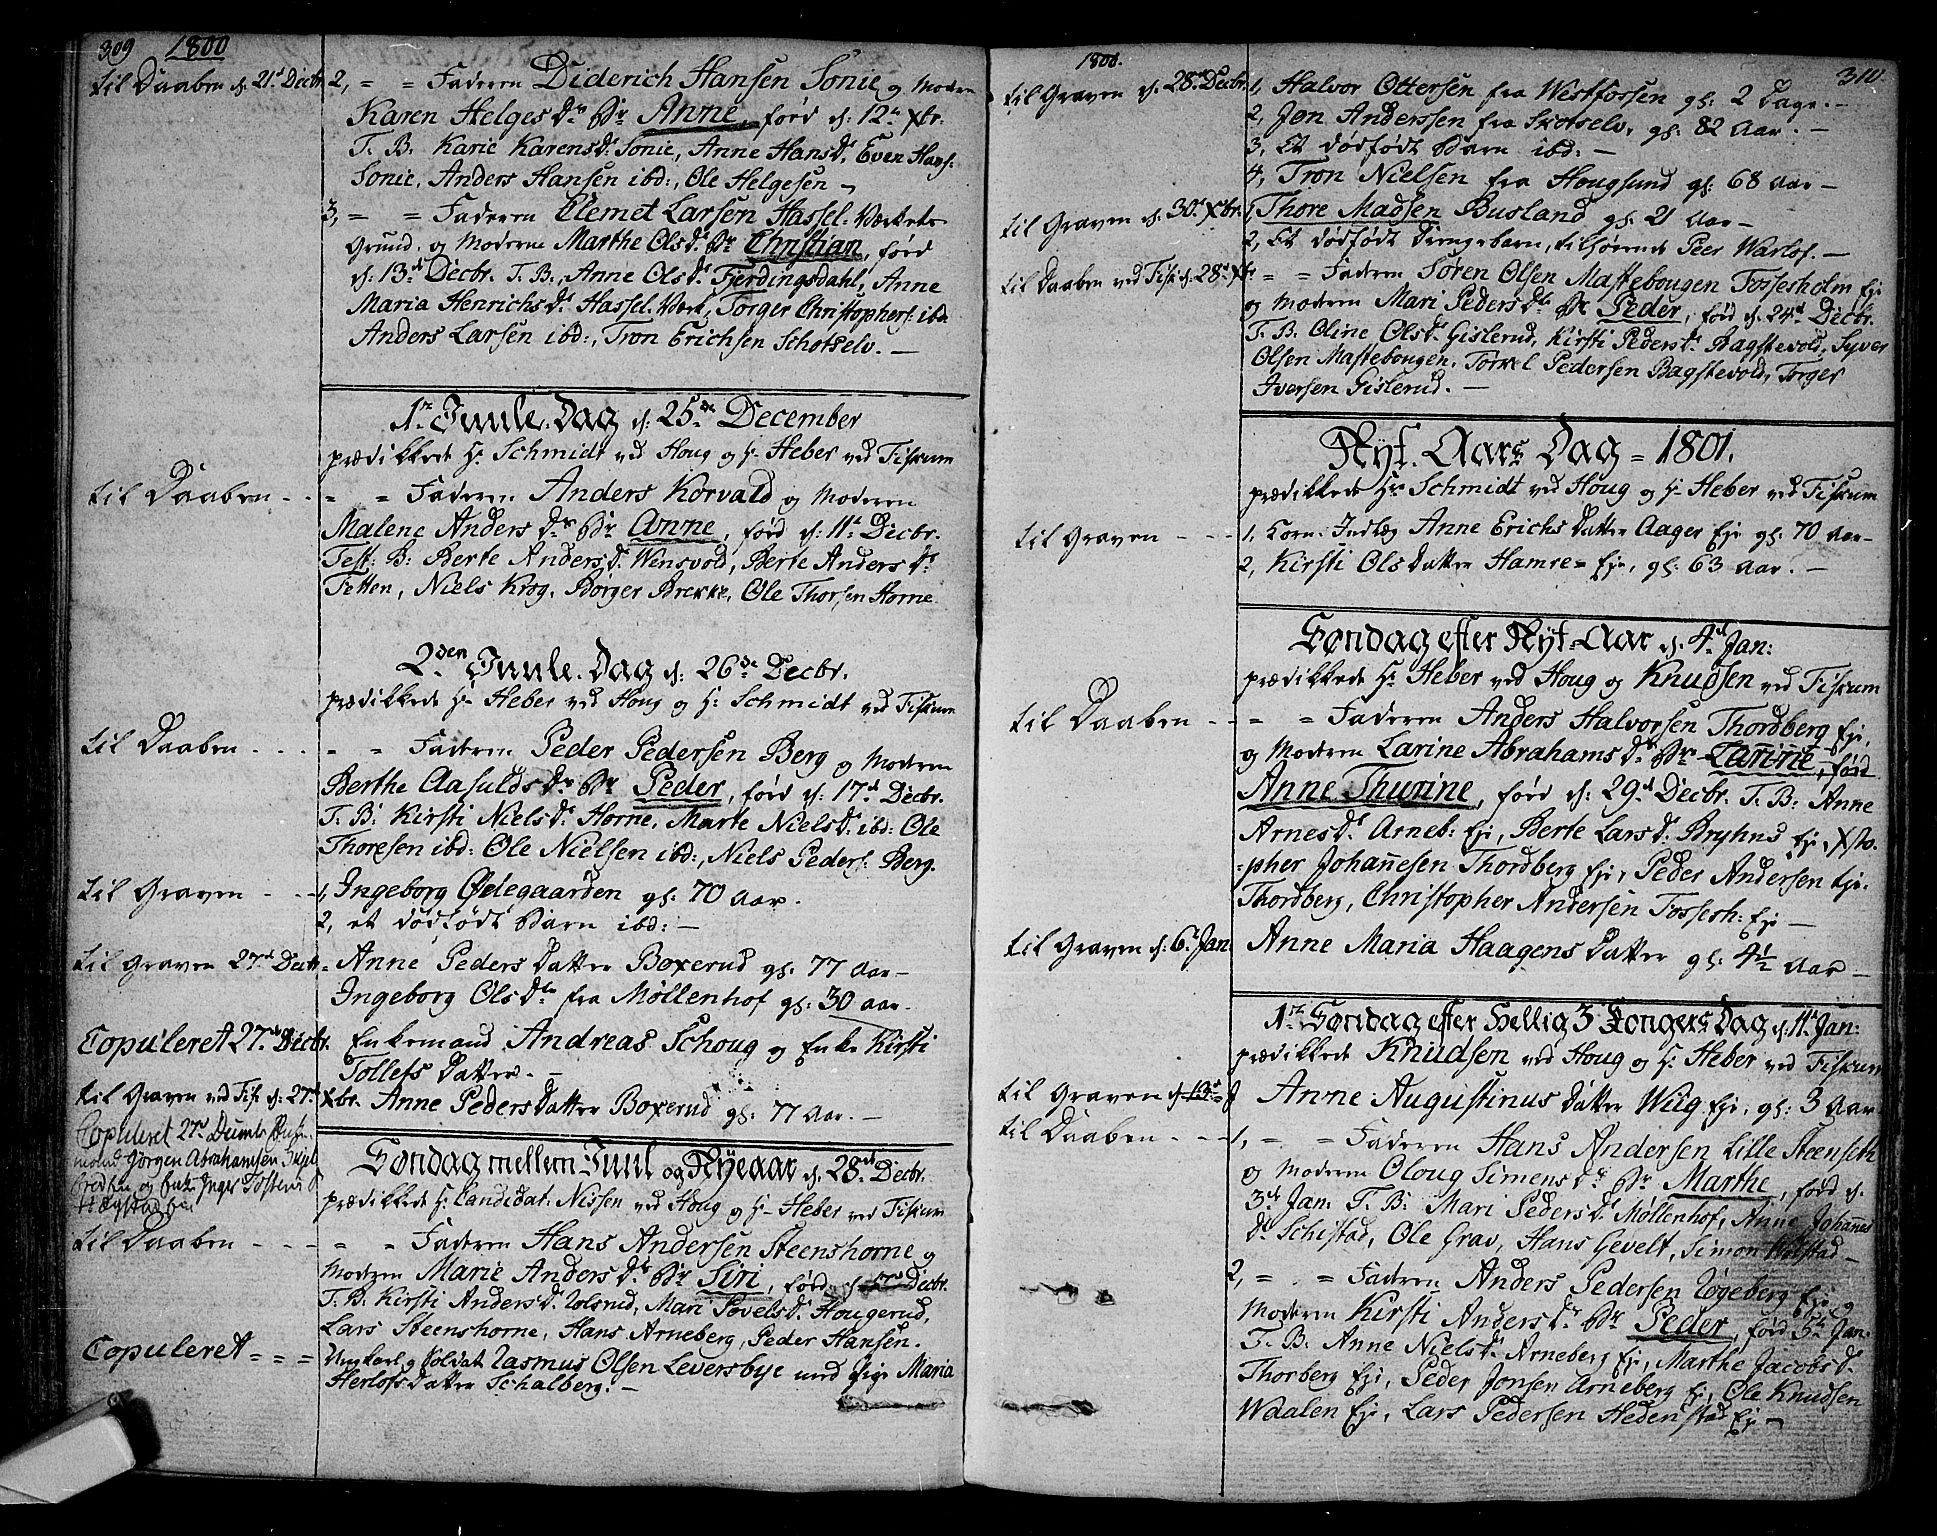 309 1800
til Daaben d: 21d Decbr. 2, = = Faderen Diderich Hansen Sonie, og Moder
Karen Helges Dr Br Anne, förd d: 12te Xbr.
T. B. Karie Karensd. Sonie, Anne Hansd. Even Hans:
Sonie, Anders Hansen ibd:, Ole Helgesen –
3, = = Faderen Clemet Larsen Hassel-Værkets
Grund, og Moderen Marthe Olsdr Br Christian, förd
d: 13d Decbr. T. B. Anne Olsdr Fjerdingsdahl, Anne
Maria Henrichsdr Hassel-Værk, Torger Christophers: ibd:
Anders Larsen ibd:, Tron Erichsen Schotselv. –
1te Juule-Dag d: 25de December
prædikkede Hr Schmidt ved Houg og Hr Heber ved Fiskum
til Daaben - - - = = Faderen Anders Korvald og Moderen
Malene Anders Dr Br Anne, förd d: 11te Decbr.
Test: B: Berte Andersd. Wensvold, Berte Anders Dr
Tetten, Niels Krog, Börger Brekke, Ole Thorsen Horne
2den Juule-Dag d: 26de Decbr.
prædikkede Hr Heber ved Houg og Hr Schmidt ved Fiskum
til Daaben - - - = = Faderen Peder Pedersen Berg og Moderen
Berthe Aasulds Dr Br Peder, förd d: 17d Decbr.
T. B: Kirsti Nielsdr Horne, Marte Nielsd. ibd: Ole
Thoresen ibd: Ole Nielsen ibd:, Niels Peders: Berg.
til Graven - - - 1, Ingeborg Ødegaarden gl: 70 Aar.
2, et dödfödt Barn ibd: –
til Graven 27d Decbr = Anne Peders Datter Boxerud gl: 77 Aar –
Ingeborg Ols Dr fra Møllenhof gl: 30 aar.
Copuleret 27de Decbr. Enkemand Andreas Schoug og Enke Kirsti
Tollefs Datter. –
til Graven ved Fisk: d: 27d Xbr. Anne Peders Datter Boxerud gl: 77 Aar. –
Copuleret 27d
Jørgen Abrahamsen
og Enke Inger
Søndag mellem Juul og Nyeaar d: 28de Decbr.
prædikkede Hr Candidat: Nissen ved Houg og Hr Heber ved Fiskum
til Daaben - - - - = = Faderen Hans Andersen Steenshorne og
Moderen Marie Anders Dr Br Siri, förd d: 17d Decbr.
T. B. Kirsti Andersd. Mari Povelsd. Hougerud,
Lars Steenshorne, Hans Arneberg, Peder Hansen.
Copuleret = = = Ungkarl og Soldat Rasmus Olsen Leversbye med Pige Maria
Herlofs Datter Schalberg. –
1800. 310.
til Graven d: 28d Decbr. 1, Halvor Ottersen fra Westfossen gl: 2 Dage. –
2, Jøn Anderssen fra Skotselv, gl: 82 Aar. –
3, Et dödfödt Barn ibd: –
4, Tron Nielsen fra Hougsund gl: 68 Aar –
til Graven d: 30d Xbr. 1, Thore Madsen Busland gl: 21 Aar –
2, Et dödfödt Drengebarn, tilhørende Peer Warlof. –
til Daaben ved Fisk: d: 28d Xbr = = Faderen Søren Olsen Mastebougen Fossesholm Eje
og Moderen Mari Peders Dr Br Peder, förd d: 24d Decbr.
T. B. Oline Olsdr Gislerud, Kirsti Pedersdr Bagstevold, Syver
Olsen Mastebougen, Torkel Pedersen Bagstevold, Torger
Iversen Gislerud. –
Nyt-Aars Dag = 1801.
prædikkede Hr Schmidt ved Houg og Hr Heber ved Fiskum
til Graven - - - 1, Corn: Indlæg Anne Erichs Datter Aager Eje gl: 70 Aar –
2, Kirsti Ols Datter Hamre = Eje, gl: 63 Aar. –
Søndag efter Nyt-Aar d: 4d Jan:
prædikkede Hr Heber ved Houg og Knudsen ved Fiskum
til Daaben - - = = Faderen Anders Halvorsen Thordberg Eje,
og Moderen Larine Abrahams Dr Br Larine, förd
Anne Thurine, förd d: 29d Decbr. T. B: Anne
Arnesdr Arneb: Eje, Berte Larsdr Bryhns Eje, Xsto-
-pher Johannesen Thordberg Eje, Peder Andersen Eje-
Thordberg, Christopher Andersen Fossesh: Eje –
til Graven d: 6d Jan. Anne Maria Haagens Datter gl: 4½ Aar –
1te Søndag efter Hellig 3 Kongers Dag d: 11d Jan:
prædikkede Knudsen ved Houg og Hr Heber ved Fiskum
til Graven Anne Augustinus Datter Wiig Eje, gl: 3 Aar
til Daaben - - - 1, = = Faderen Hans Andersen Lille Steenseth
og Moderen Oloug Simens Dr Br Marthe, förd d.
3d Jan: T. B: Mari Pedersdr Møllenhof, Anne Johannes
Dr Schistad, Ole Grav, Hans Gevelt, Simon Kolstad –
2, = = Faderen Anders Pedersen Eje og
Moderen Kirsti Anders Dr Br Peder, förd 5te Jan:
T. B. Anne Nielsdr Arneberg Eje, Marthe Jacobs D.
Thorberg Eje, Peder Jonsen Arneberg Eje, Ole Knudsen
Waalen Eje, Lars Pedersen Hedenstad Eje –